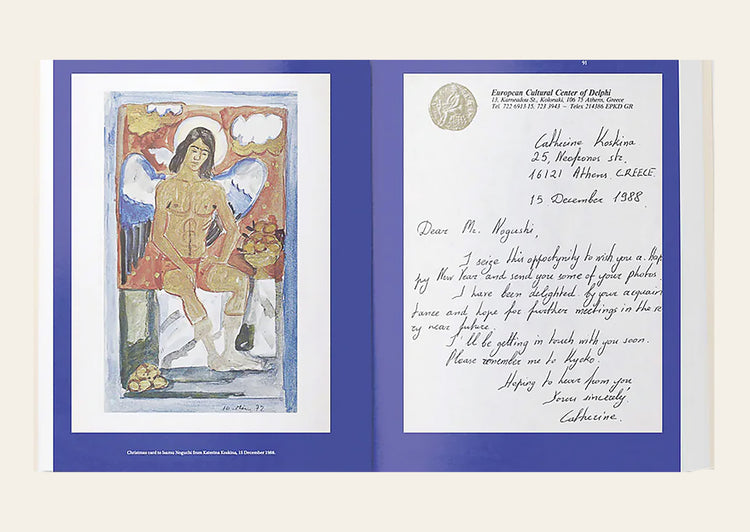 Christmas card to Isamu Noguchi from Katerina Koskina, 15 December 1988.
91
European Cultural Center of Delphi
13, Karneadou St., Kolonaki, 106 75 Athens, Greece
Tel. 722 6913-15, 723 3943 – Telex 214386 EPKD GR
Catherine Koskina
25, Neofronos str.
16121 Athens. GREECE.
15 December 1988.
Dear Mr. Nogushi,
I seize this opportunity to wish you a Hap
py New Year and send you some of your photos.
I have been delighted by your acquain
tance and hope for further meetings in the ve
ry near future.
I'll be getting in touch with you soon.
Please remember me to Kyoko.
Hoping to hear from you
Yours sincerely,
Catherine.